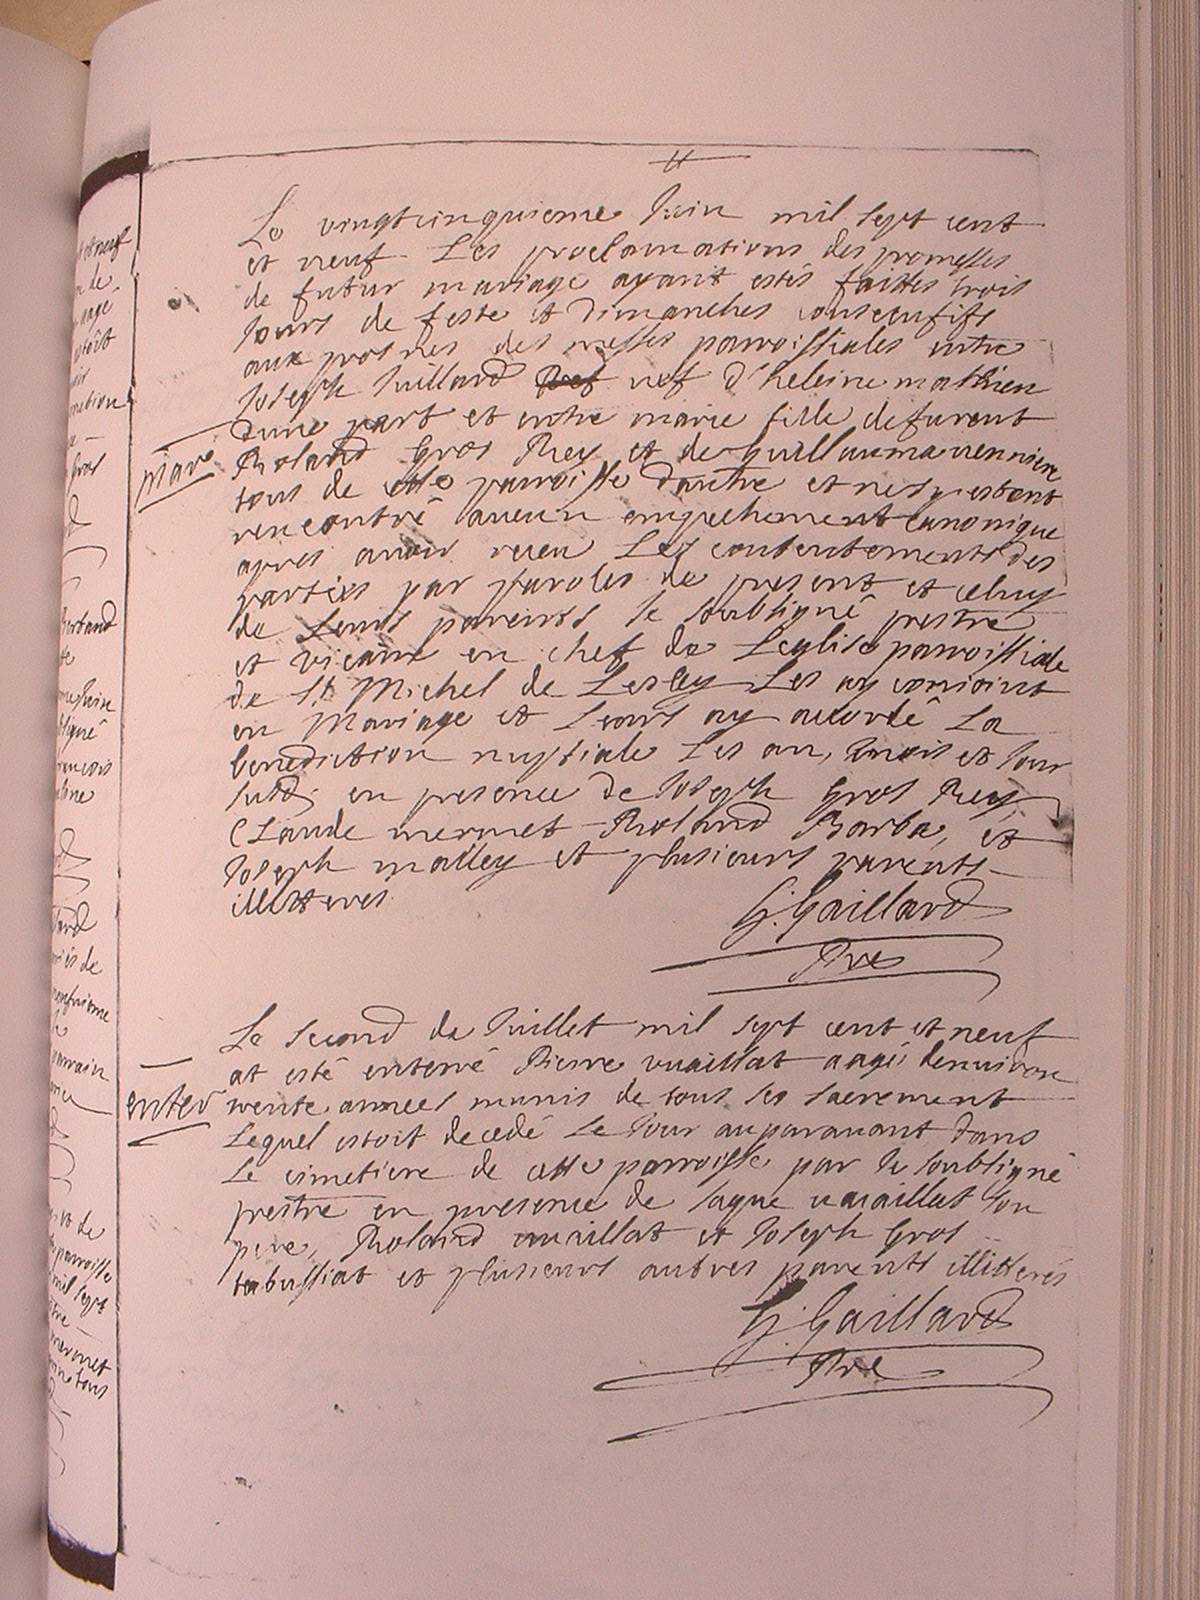 Le vingtcinquieme Juin mil sept cent
et neuf Les proclamations des promesses
de futur mariage ayant estés faittes trois
Jours de feste et dimanches consecutifs
aux prosnes des messes parroissiales entre
Joseph Juillard vef d'heleine mathieu
d'une part et entre marie fille de furent
mare
Roland Gros Rey et de Guillauma
tous de cette parroisse d'autre et nes'y estant
rencontré aucun empechement canonique
apres avoir receu Les contentements des
parties par paroles de present et celuy
de Leurs parents Je soubsigné prestre
et vicaire en chef de Leglise parroissiale
de St Michel de Lesley Les ay conioint
en Mariage et Leurs ay accordé La
benediction nuptiale Les an, mois et Jour
susd. en presence de Joseph Gros Rey
Claude mermet Roland Barba, et
Joseph malley et plusieurs parents
illitteres
G. Gaillard
Pre
Le second de Juillet mil sept cent et neuf
at esté enterré Pierre vuaillat aagé denuiron
enter
trente années munis de tous ses sacrement
Lequel estoit decedé Le Jour auparauant dans
Le cimetiere de cette parroisse par Je soubsigné
prestre en presence de Jaque vuaillat son
pere, Roland vuaillat et Joseph Gros
tabussiat et plusieurs autres parents illitterés
G. Gaillard
Pre